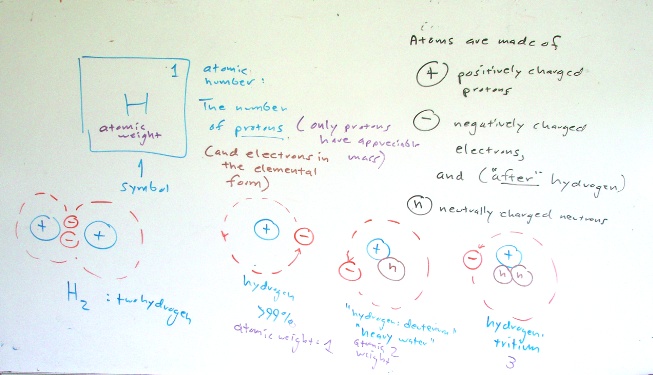 1
H
atomic
weight
symbol
atomic
number:
The number
of protons
(only protons
have appreciable
mass)
(and electrons in
the elemental
form)
Atoms are made of
+ positively charged
protons
- negatively charged
electrons,
and ("after" hydrogen)
n neutrally charged neutrons
+ - - +
H2 : two hydrogen
+ -
hydrogen
>99%
atomic weight = 1
+ n -
"hydrogen: deuterium"
"heavy water"
atomic 2
weight
- + n n
hydrogen:
tritium
3